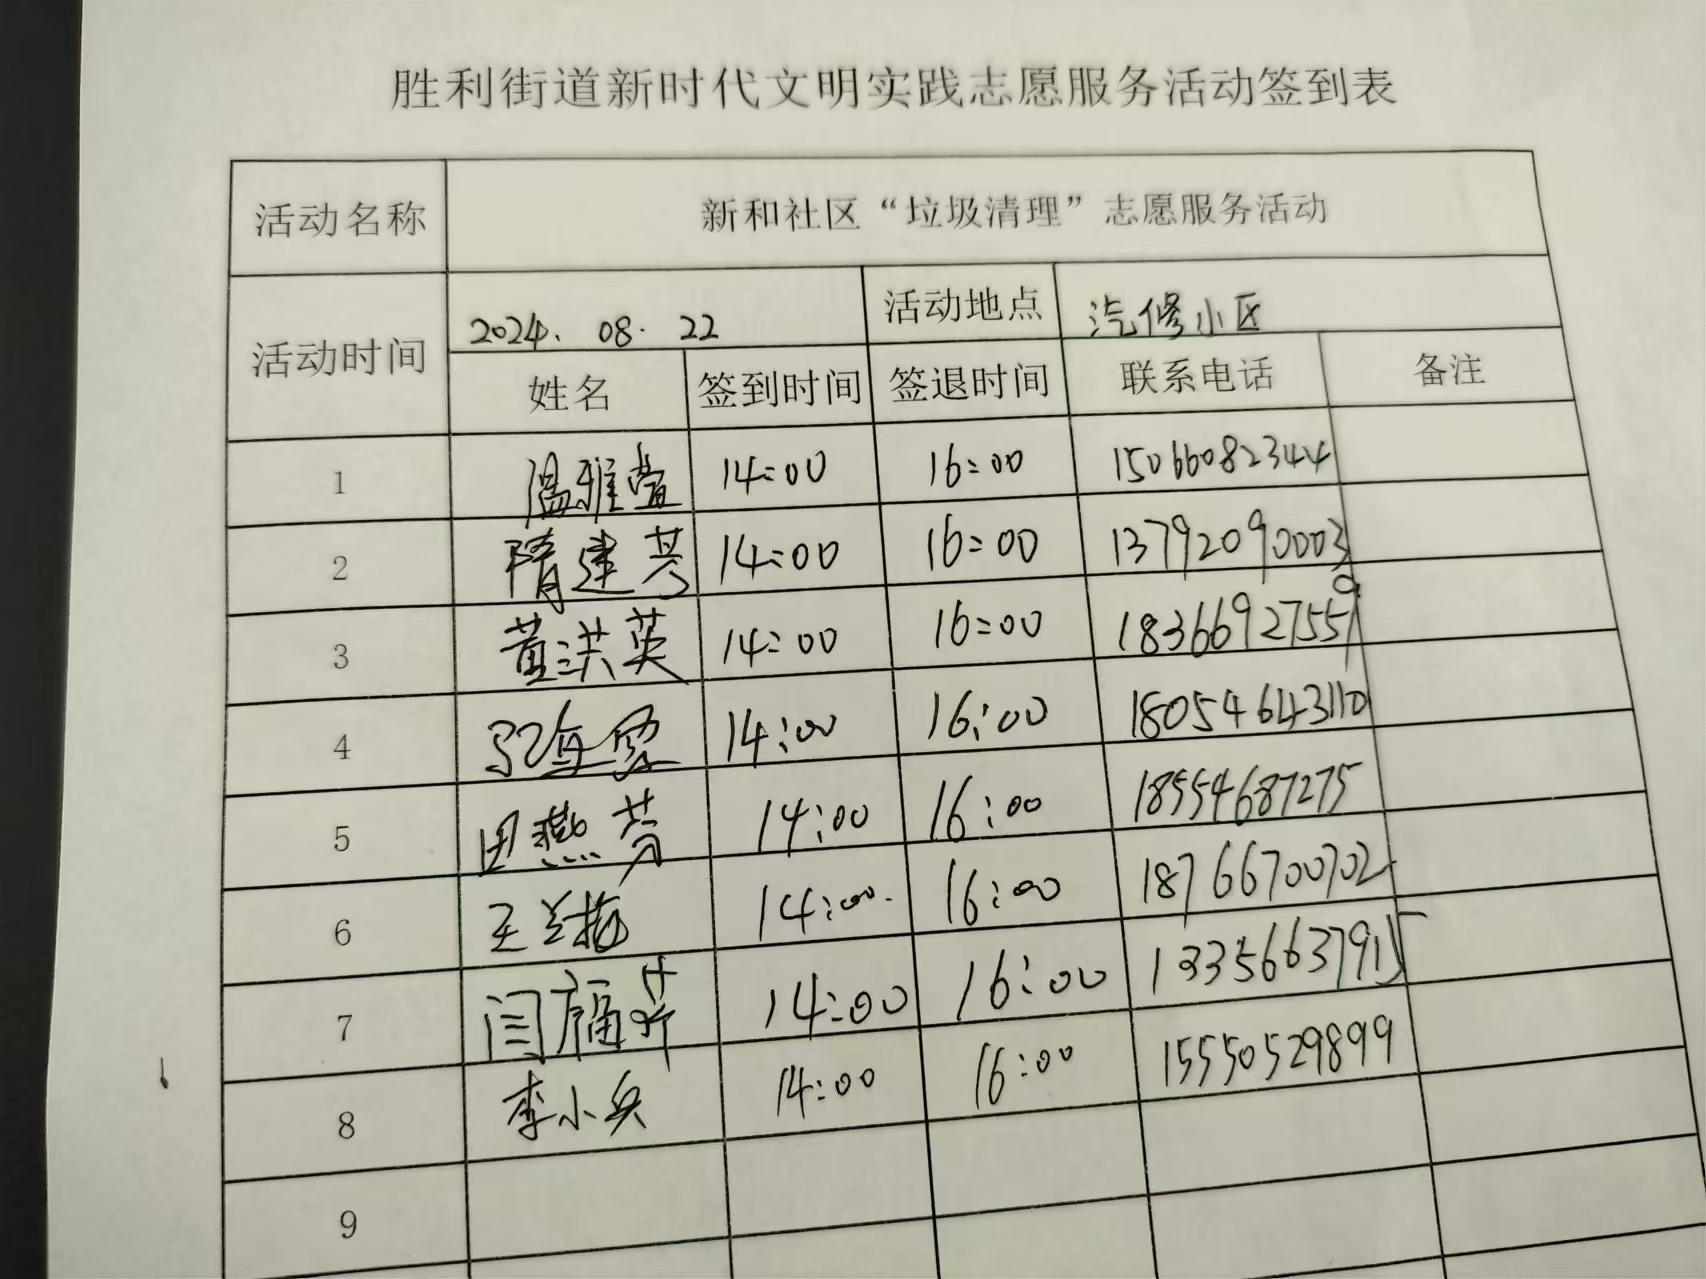 胜利街道新时代文明实践志愿服务活动签到表
活动名称 新和社区“垃圾清理”志愿服务活动
活动时间 2024.08.22 活动地点 汽修小区
姓名 签到时间 签退时间 联系电话 备注
1 温雅萱 14:00 16:00 15066082344
2 隋建芳 14:00 16:00 13792090003
3 黄洪英 14:00 16:00 18366927559
4 14:00 16:00 18054643110
5 田燕芳 14:00 16:00 18554687275
6 王兰梅 14:00 16:00 18766700702
7 闫福芹 14:00 16:00 13356637915
8 李小兵 14:00 16:00 15550529899
9